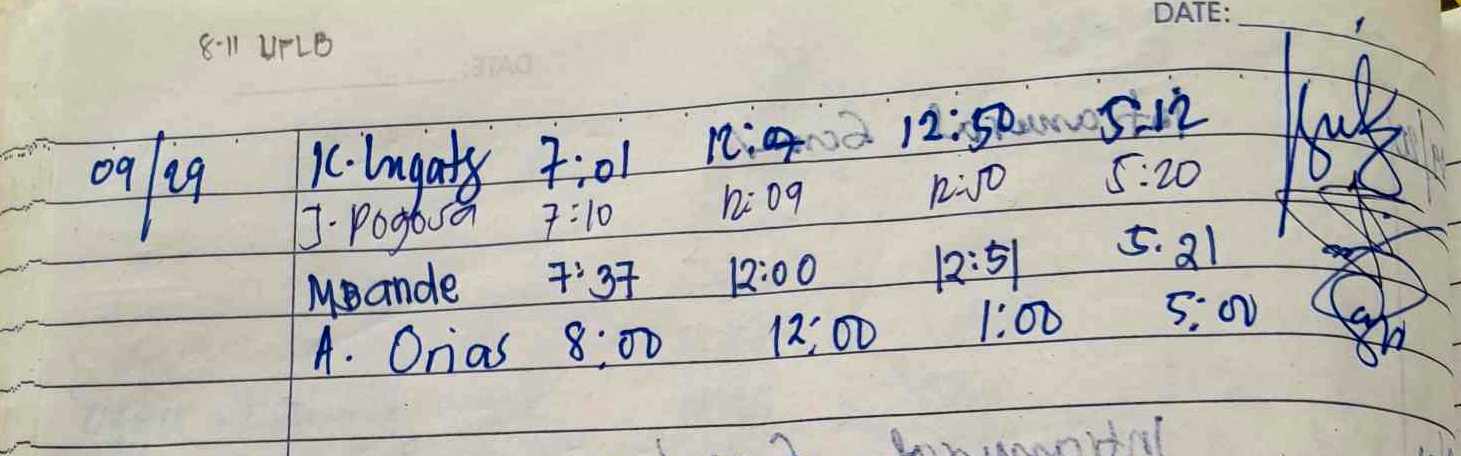 DATE:
8-11 UPLB
09/29 K. Ingaty 7:01 12:07 12:50 5:12
J. Pogosa 7:10 12:09 12:50 5:20
MBande 7:37 12:00 12:51 5:21
A. Orias 8:00 12:00 1:00 5:00